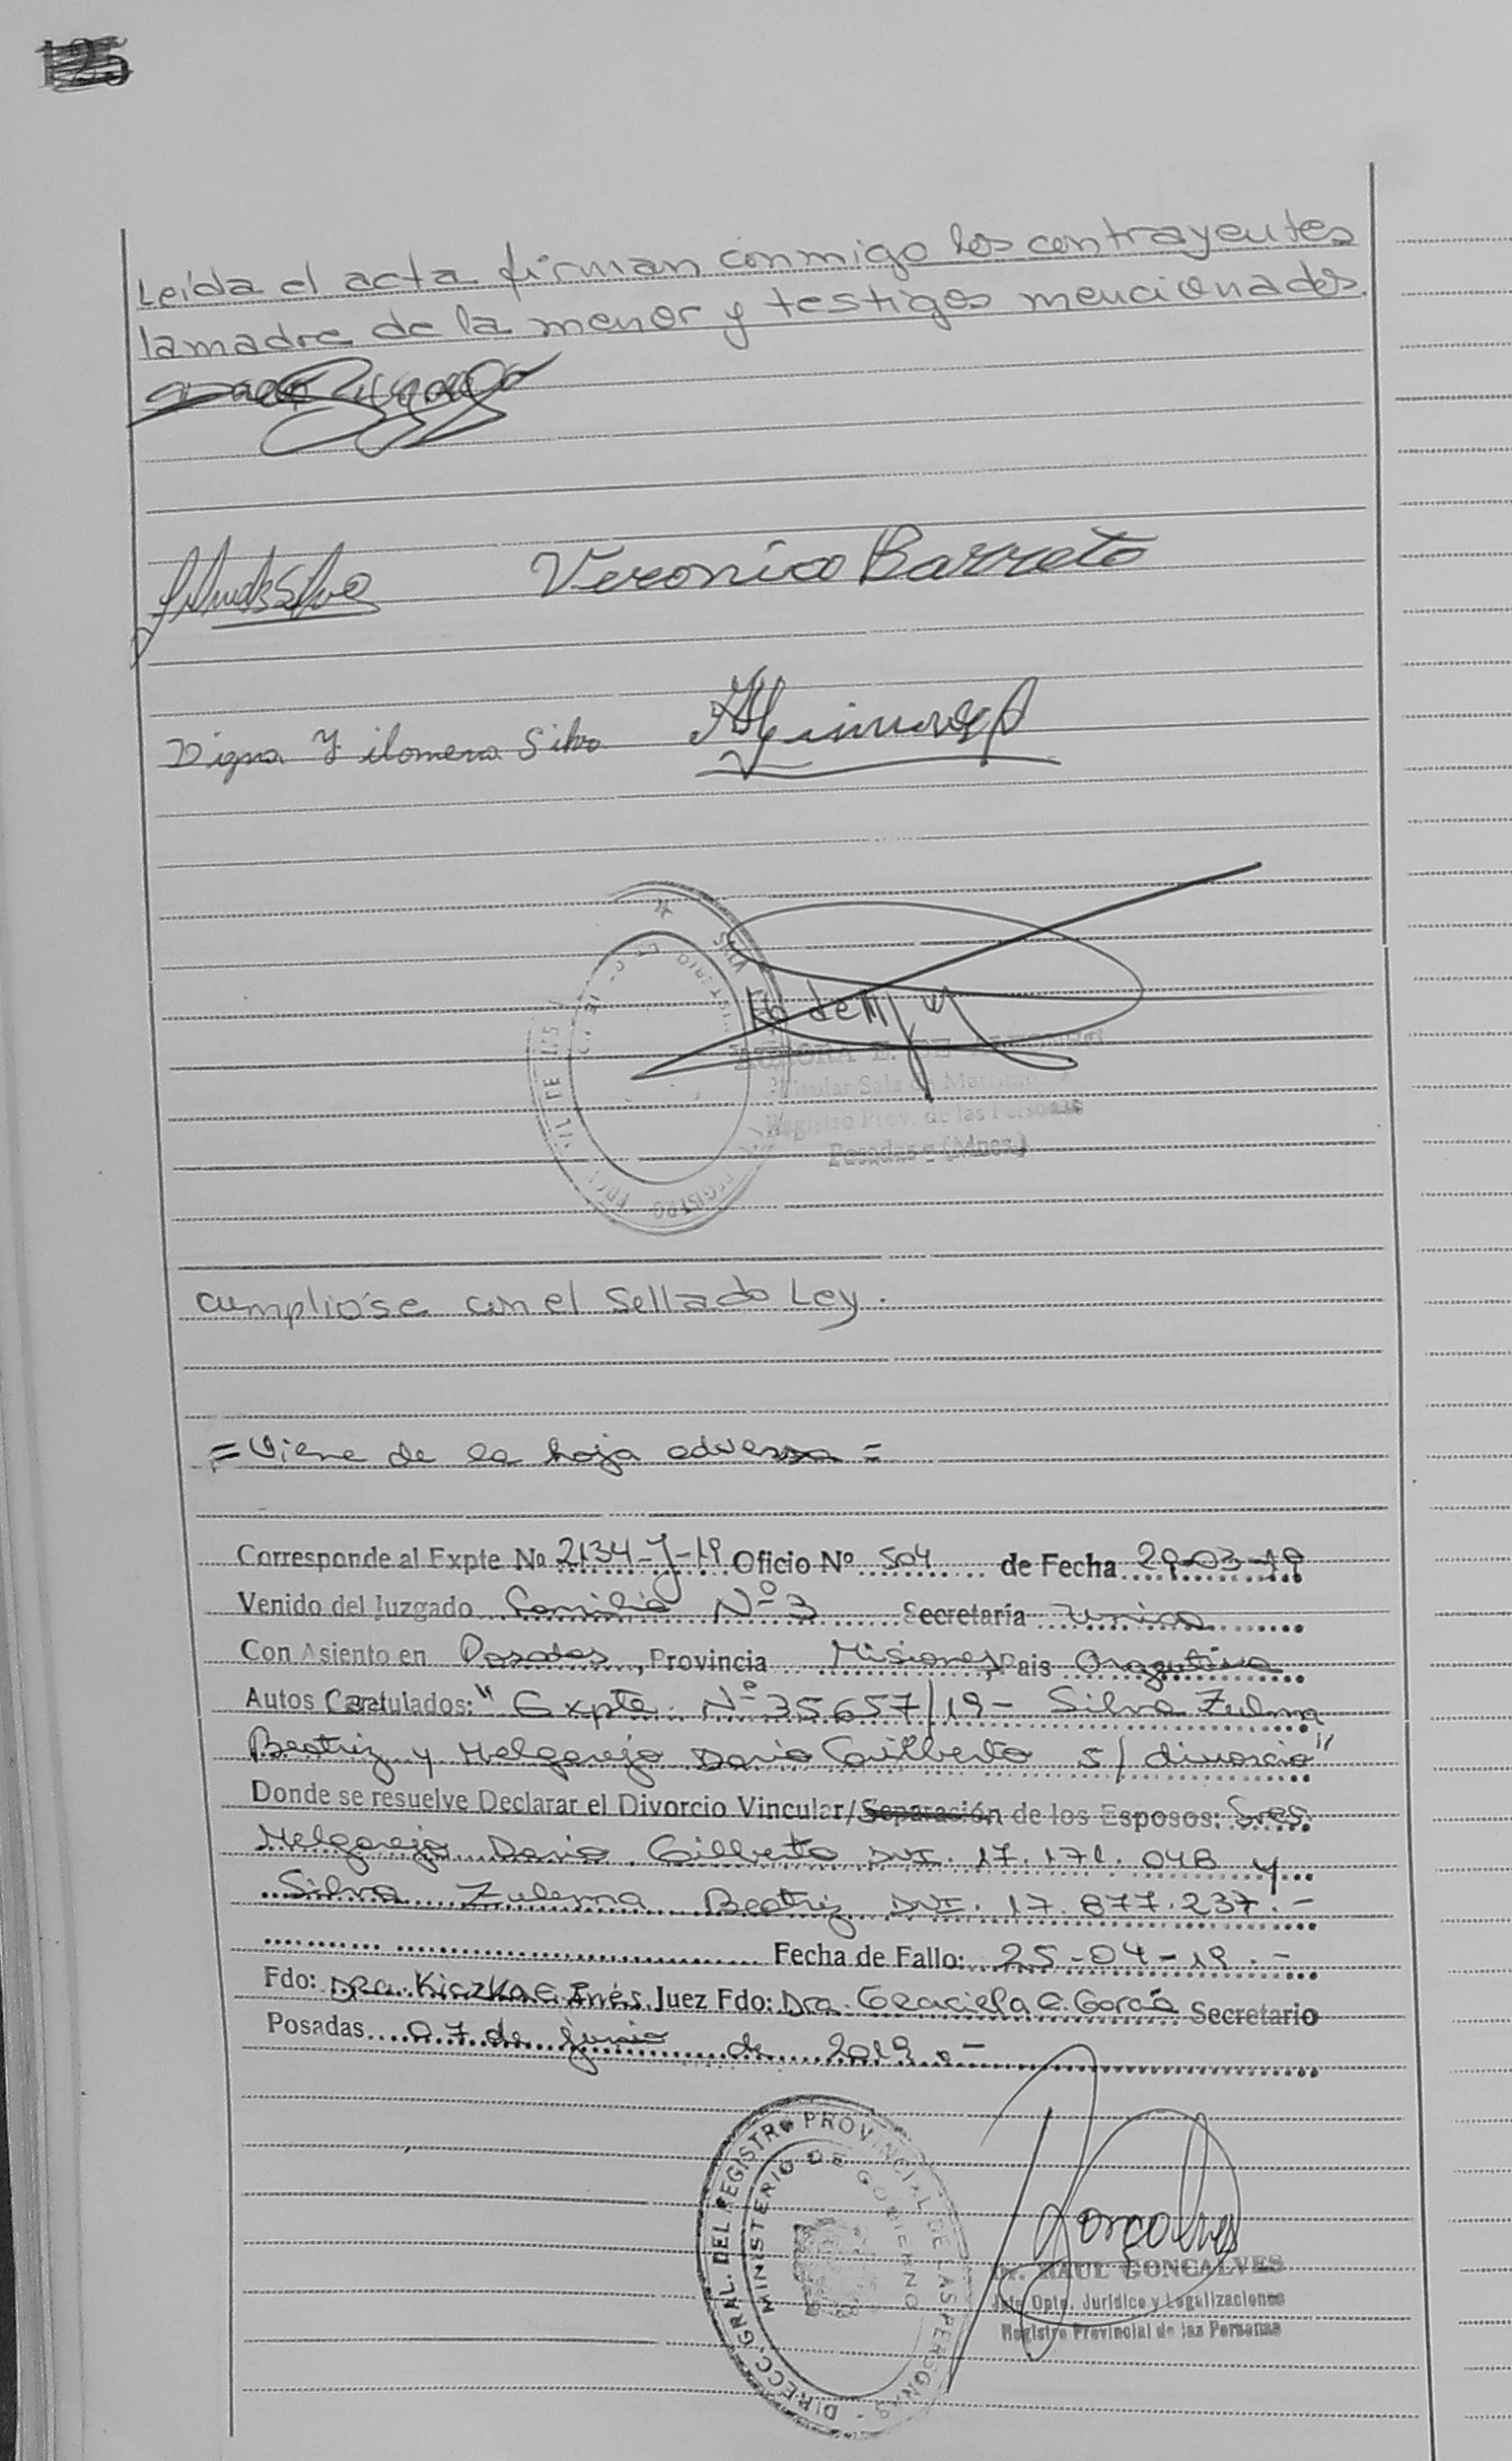 125
Leída el acta firman conmigo los contrayentes
la madre de la menor y testigos mencionados.
Veronica Barreto
Digna Filomena Silva
Titular Sala de
Registro Prov. de las Personas
Posadas - (Mnes.)
cumplióse con el Sellado Ley.
= Viene de la hoja adversa =
Corresponde al Expte Nº 2134-J-19 Oficio Nº 504 de Fecha 29-03-19
Venido del Juzgado Familia Nº 3 Secretaría Unica
Con Asiento en Posadas, Provincia Misiones, Pais Argentina
Autos Caratulados: "Expte. Nº 35657/19 - Silva Zulma
Beatriz y Melgarejo Dario Gilberto s/ divorcio"
Donde se resuelve Declarar el Divorcio Vincular/Separación de los Esposos: Sres.
Melgarejo Dario Gilberto DNI. 17.171.048 y
Silva Zulema Beatriz DNI. 17.877.237.-
Fecha de Fallo: 25-04-19.-
Fdo: Dra. Kiczka E. Inés Juez Fdo: Dra. Graciela E. García Secretario
Posadas 07 de junio de 2019.-
DIRECC. GRAL. DEL REGISTRO PROVINCIAL DE LAS PERSONAS
MINISTERIO DE GOBIERNO
Dr. RAUL GONCALVES
Jefe Dpto. Jurídico y Legalizaciones
Registro Provincial de las Personas